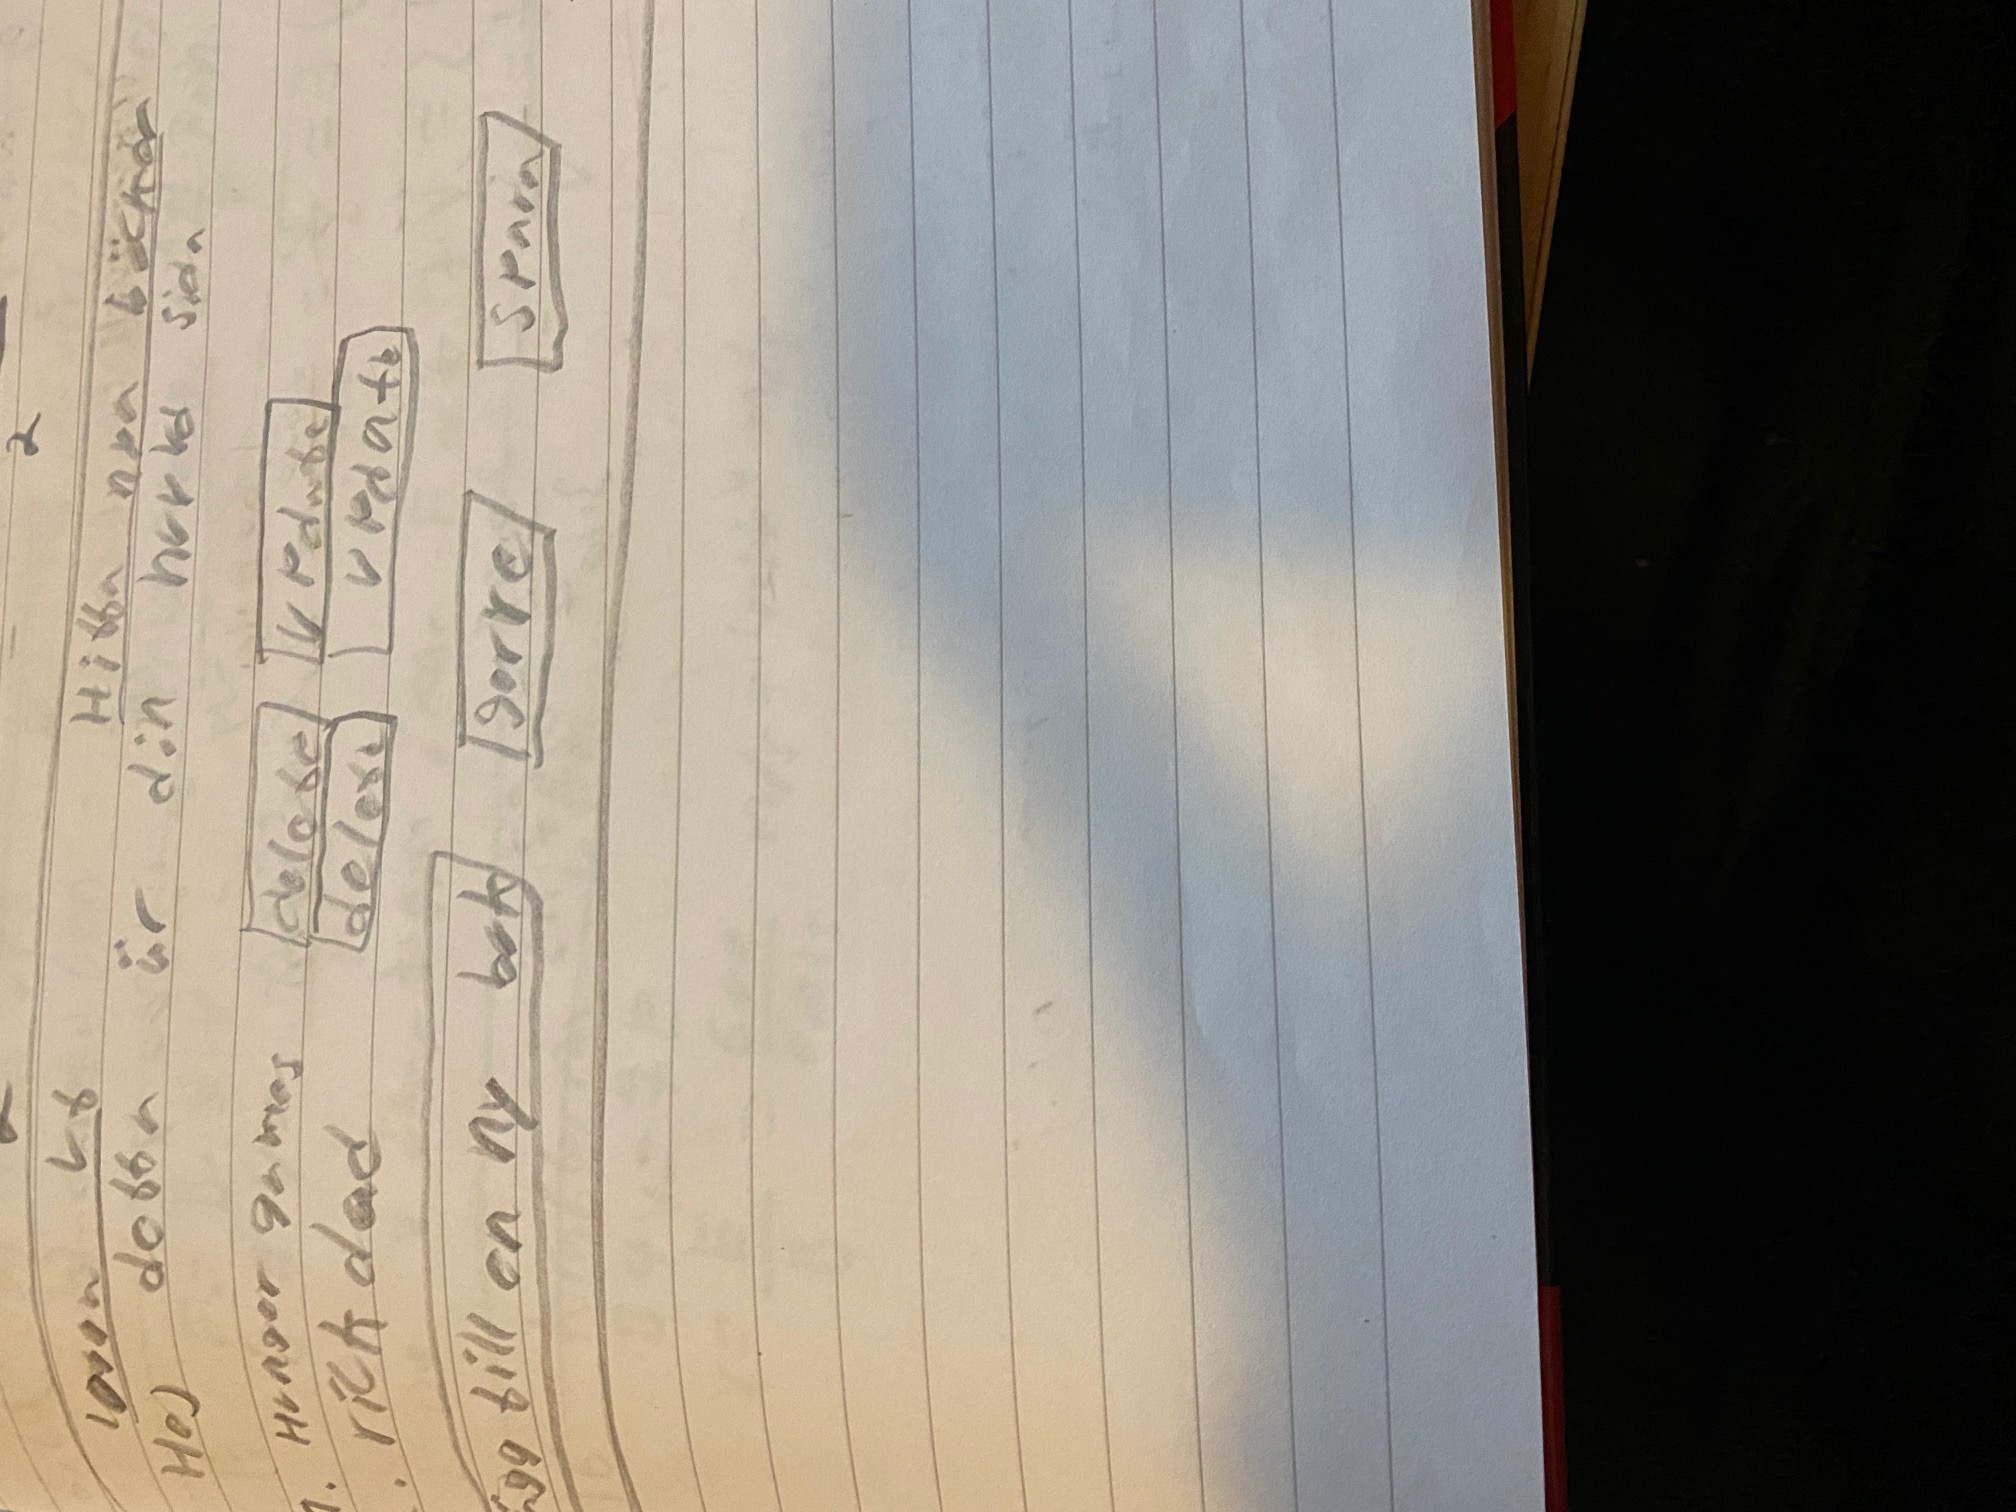 2
logga ut Hitta nya böcker
Hej detta är din huvud sida
1. Hunger games delete update
. rich dad delete update
ägg till en ny bok genre spara